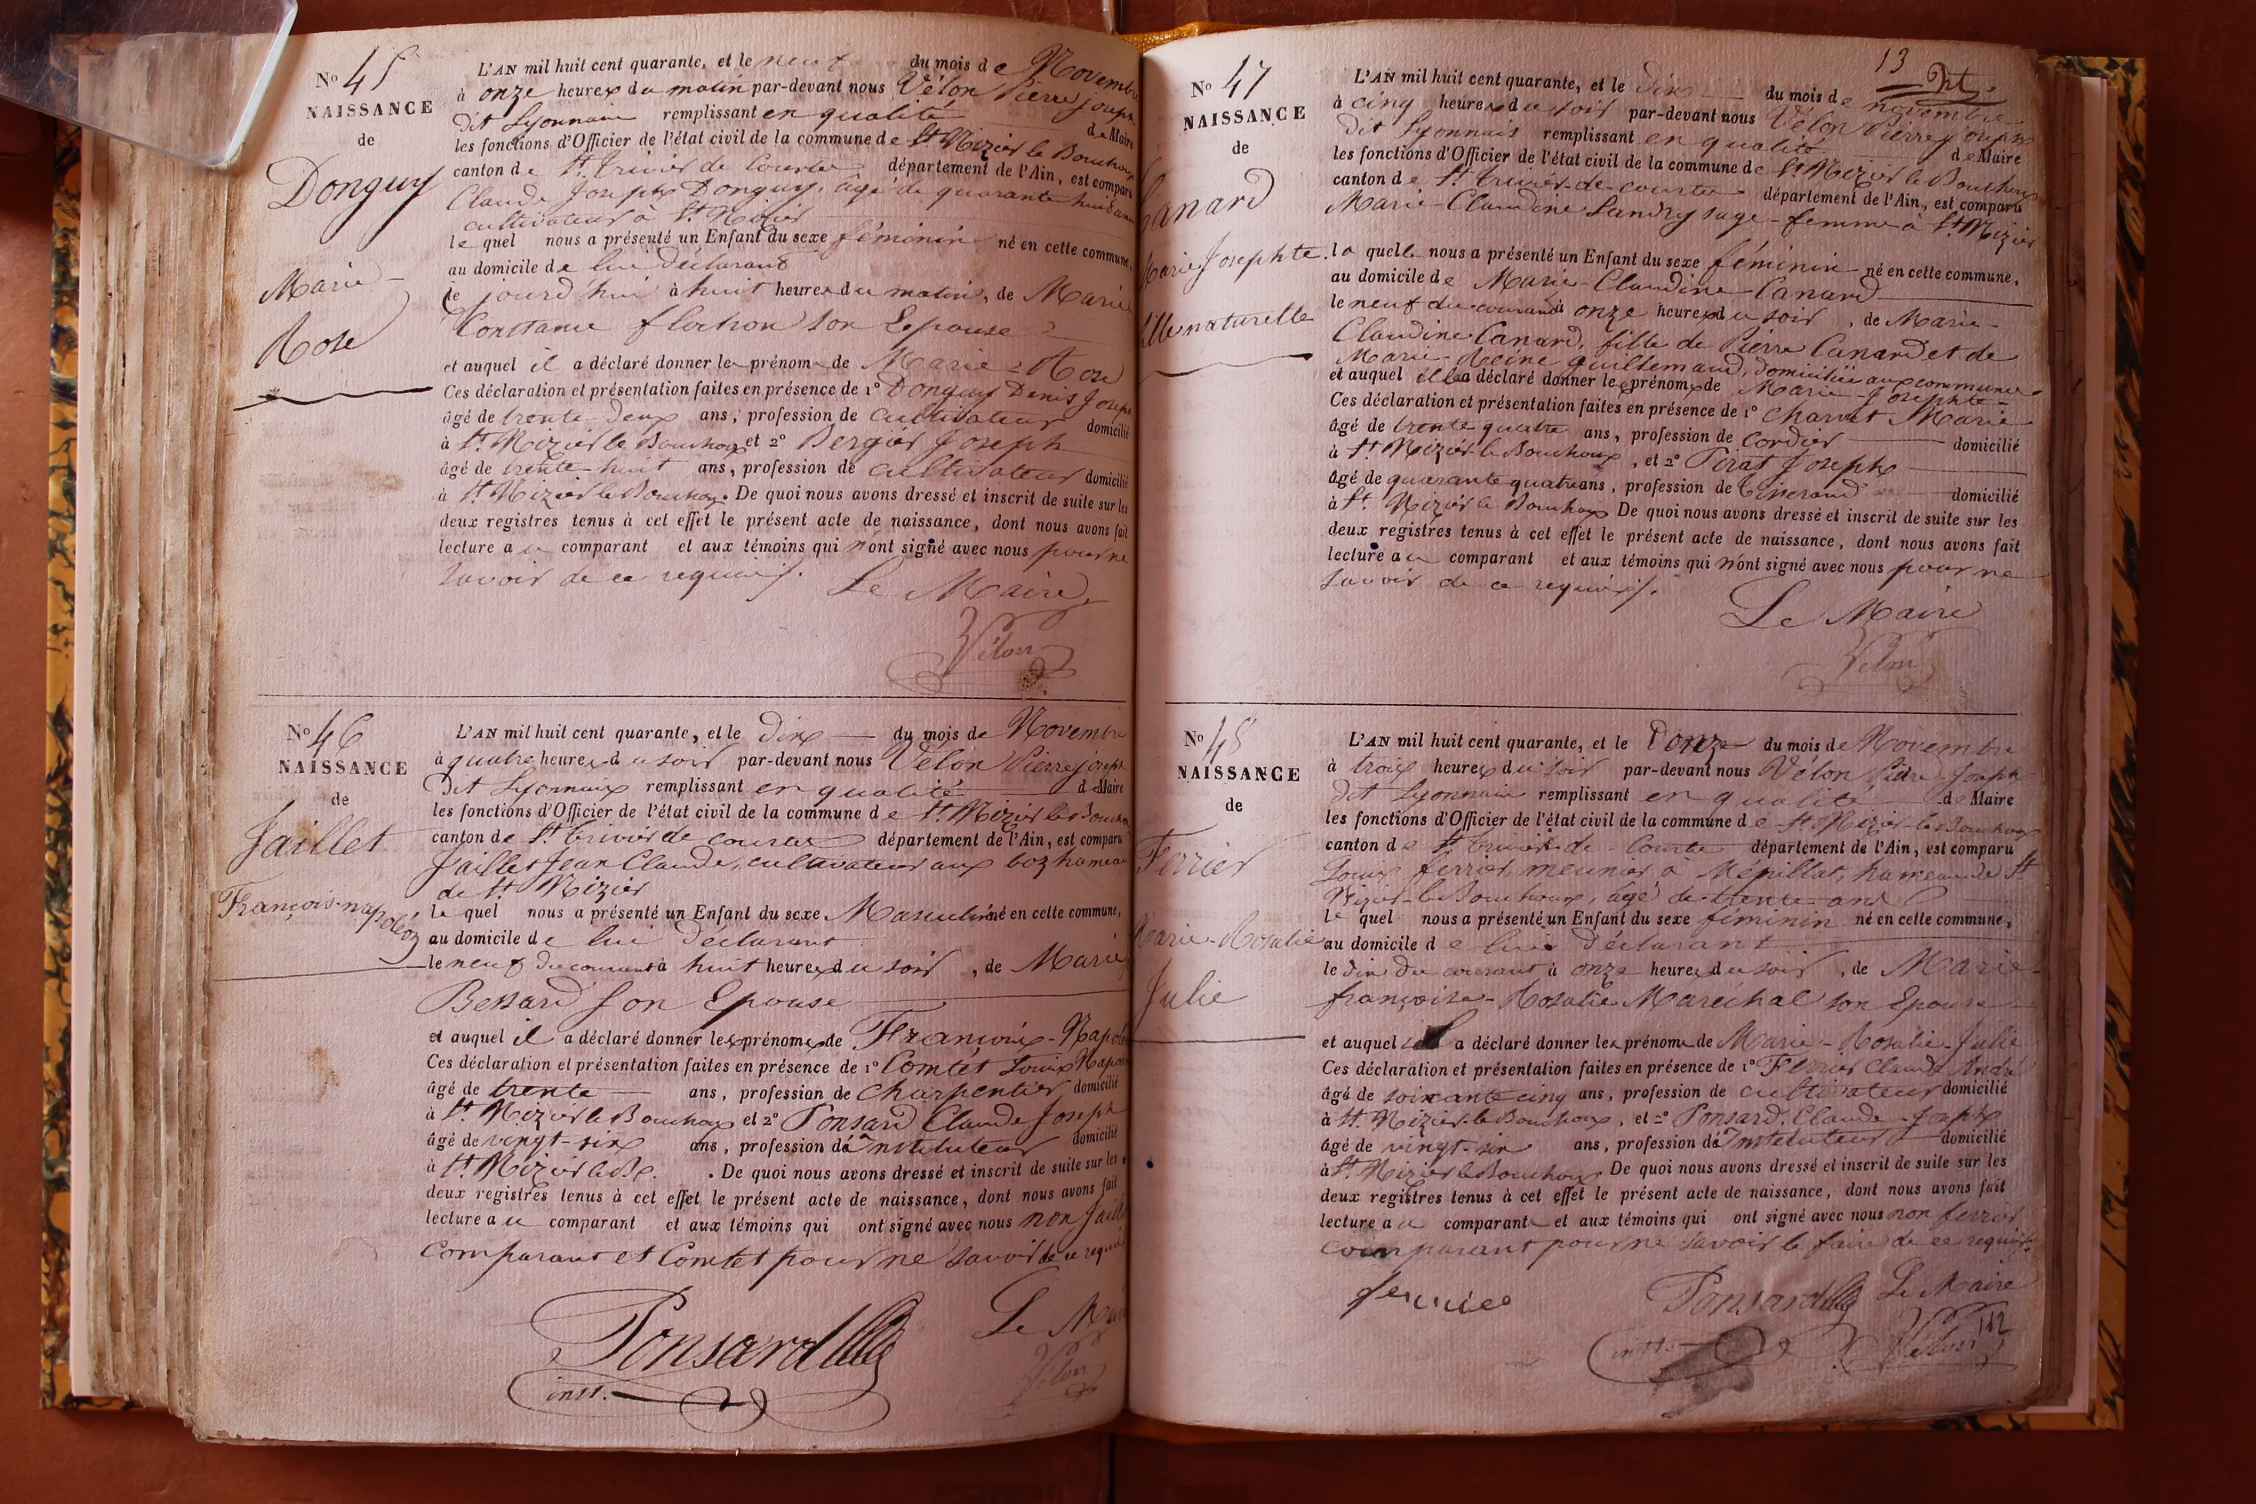 No 45
NAISSANCE
de
Donguy
Marie
Rose
L'AN mil huit cent quarante, et le neuf du mois de Novembre
à onze heures du matin par-devant nous Vélon Pierre Joseph
dit Lyonnais remplissant en qualité de Maire
les fonctions d'Officier de l'état civil de la commune de St Nizier le Bouchoux
canton de St. Trivier de Courtes département de l'Ain, est comparu
Claude Joseph Donguy, âgé de quarante huit ans
cultivateur à St Nizier
le quel nous a présenté un Enfant du sexe féminin né en cette commune,
au domicile de lui déclarant
le jourd'hui à huit heures du matin, de Marie
Constance son Epouse
et auquel il a déclaré donner les prénoms de Marie Rose
Ces déclaration et présentation faites en présence de 1o Donguy Denis Joseph
âgé de trente-deux ans, profession de cultivateur domicilié
à St Nizier le Bouchoux et 2o Bergier Joseph
âgé de trente-huit ans, profession de cultivateur domicilié
à St Nizier le Bouchoux. De quoi nous avons dressé et inscrit de suite sur les
deux registres tenus à cet effet le présent acte de naissance, dont nous avons fait
lecture au comparant et aux témoins qui n'ont signé avec nous pour ne
savoir de ce requis.
Le Maire
Vélon
No 46
NAISSANCE
de
Jaillet
François-napoléon
L'AN mil huit cent quarante, et le dix du mois de Novembre
à quatre heures du soir par-devant nous Vélon Pierre joseph
Dit Lyonnais remplissant en qualité de Maire
les fonctions d'Officier de l'état civil de la commune de St Nizier le Bouchoux
canton de St. Trivier de courtes département de l'Ain, est comparu
Jaillet Jean Claude, cultivateur aux boz hameau
de St Nizier
le quel nous a présenté un Enfant du sexe Masculin né en cette commune,
au domicile de lui déclarant
le neuf du courant à huit heures du soir, de Marie
Bessard son Epouse
et auquel il a déclaré donner les prénoms de François-Napoléon
Ces déclaration et présentation faites en présence de 1o Comtet Louis Napoléon
âgé de trente ans, profession de charpentier domicilié
à St Nizier le Bouchoux et 2o Ponsard Claude Joseph
âgé de vingt-six ans, profession d'instituteur domicilié
à St Nizier le Bx. De quoi nous avons dressé et inscrit de suite sur les
deux registres tenus à cet effet le présent acte de naissance, dont nous avons fait
lecture au comparant et aux témoins qui ont signé avec nous non Jaillet
comparant et Comtet pour ne savoir de ce requis
Ponsard
inst.
Le Maire
Vélon
13
No 47
NAISSANCE
de
Canard
Marie Josephte
fille naturelle
L'AN mil huit cent quarante, et le dix du mois de novembre
à cinq heures du soir par-devant nous Vélon Pierre Joseph
dit Lyonnais remplissant en qualité de Maire
les fonctions d'Officier de l'état civil de la commune de St Nizier le Bouchoux
canton de St. Trivier-de-courtes département de l'Ain, est comparu
Marie-Claudine Landry sage-femme à St Nizier
la quelle nous a présenté un Enfant du sexe féminin né en cette commune,
au domicile de Marie-Claudine Canard
le neuf du courant à onze heures du soir, de Marie-
Claudine Canard, fille de Pierre Canard et de
Marie-Reine Guillemaud, domiciliée aux commune
et auquel elle a déclaré donner les prénoms de Marie-Josephte
Ces déclaration et présentation faites en présence de 1o Charvet Marie
âgé de trente quatre ans, profession de Cordier domicilié
à St Nizier le Bouchoux, et 2o Pirat Joseph
âgé de quarante quatre ans, profession de tisserand domicilié
à St. Nizier le Bouchoux De quoi nous avons dressé et inscrit de suite sur les
deux registres tenus à cet effet le présent acte de naissance, dont nous avons fait
lecture au comparant et aux témoins qui n'ont signé avec nous pour ne
savoir de ce requis.
Le Maire
Vélon
No 48
NAISSANCE
de
Ferrier
Marie-Rosalie
Julie
L'AN mil huit cent quarante, et le Donze du mois de Novembre
à trois heures du soir par-devant nous Vélon Pierre Joseph
dit Lyonnais remplissant en qualité de Maire
les fonctions d'Officier de l'état civil de la commune de St Nizier-le-Bouchoux
canton de St Trivier-de-Courtes département de l'Ain, est comparu
Louis ferrier, meunier à Mépillat, hameau de St
Nizier-le-Bouchoux, âgé de trente ans
le quel nous a présenté un Enfant du sexe féminin né en cette commune,
au domicile de lui déclarant
le dix du courant à onze heures du soir, de Marie-
françoise-Rosalie Maréchal son Epouse
et auquel il a déclaré donner les prénoms de Marie-Rosalie-Julie
Ces déclaration et présentation faites en présence de 1o Ferrier Claude André
âgé de soixante cinq ans, profession de cultivateur domicilié
à St. Nizier-le-Bouchoux, et 2o Ponsard, Claude-Joseph
âgé de vingt-six ans, profession d'instituteur domicilié
à St. Nizier le Bouchoux De quoi nous avons dressé et inscrit de suite sur les
deux registres tenus à cet effet le présent acte de naissance, dont nous avons fait
lecture au comparant et aux témoins qui ont signé avec nous non ferrier
comparant pour ne savoir le faire de ce requis.
ferrier
Ponsard
inst.
Le Maire
Vélon